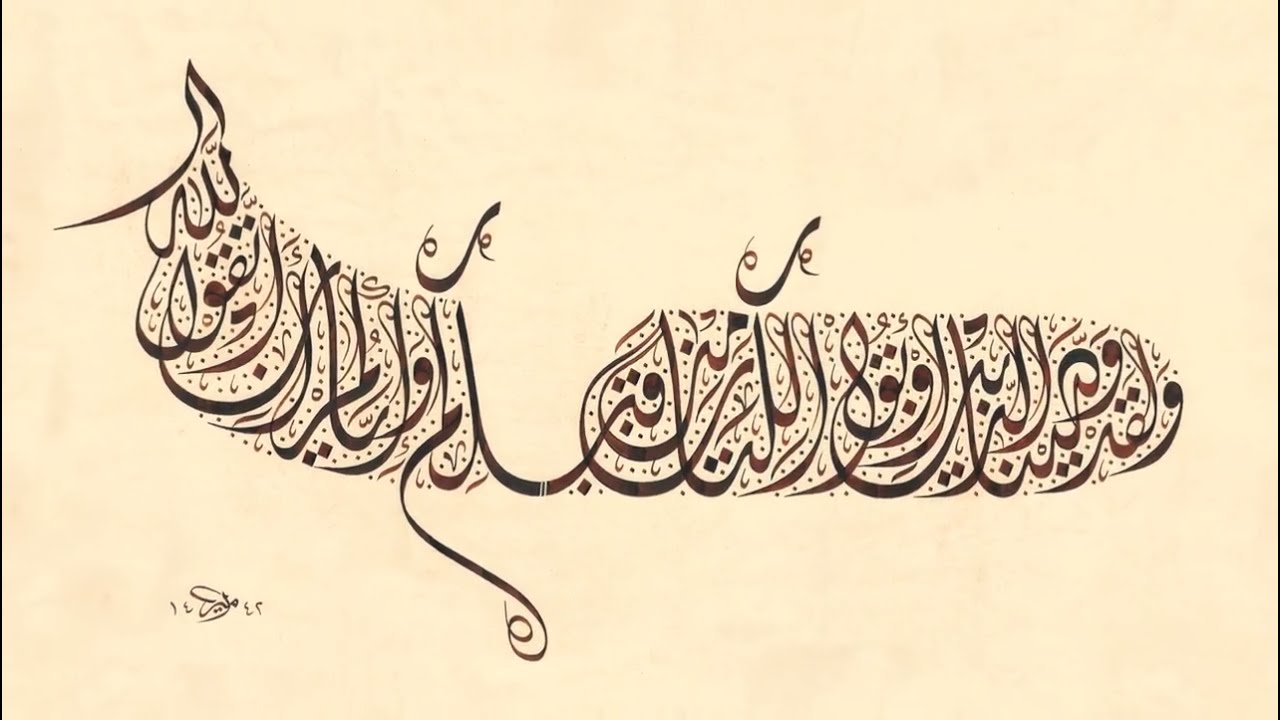 ولقد وصينا الذين أوتوا الكتاب من قبلكم وإياكم أن اتقوا الله
١٤٤٢